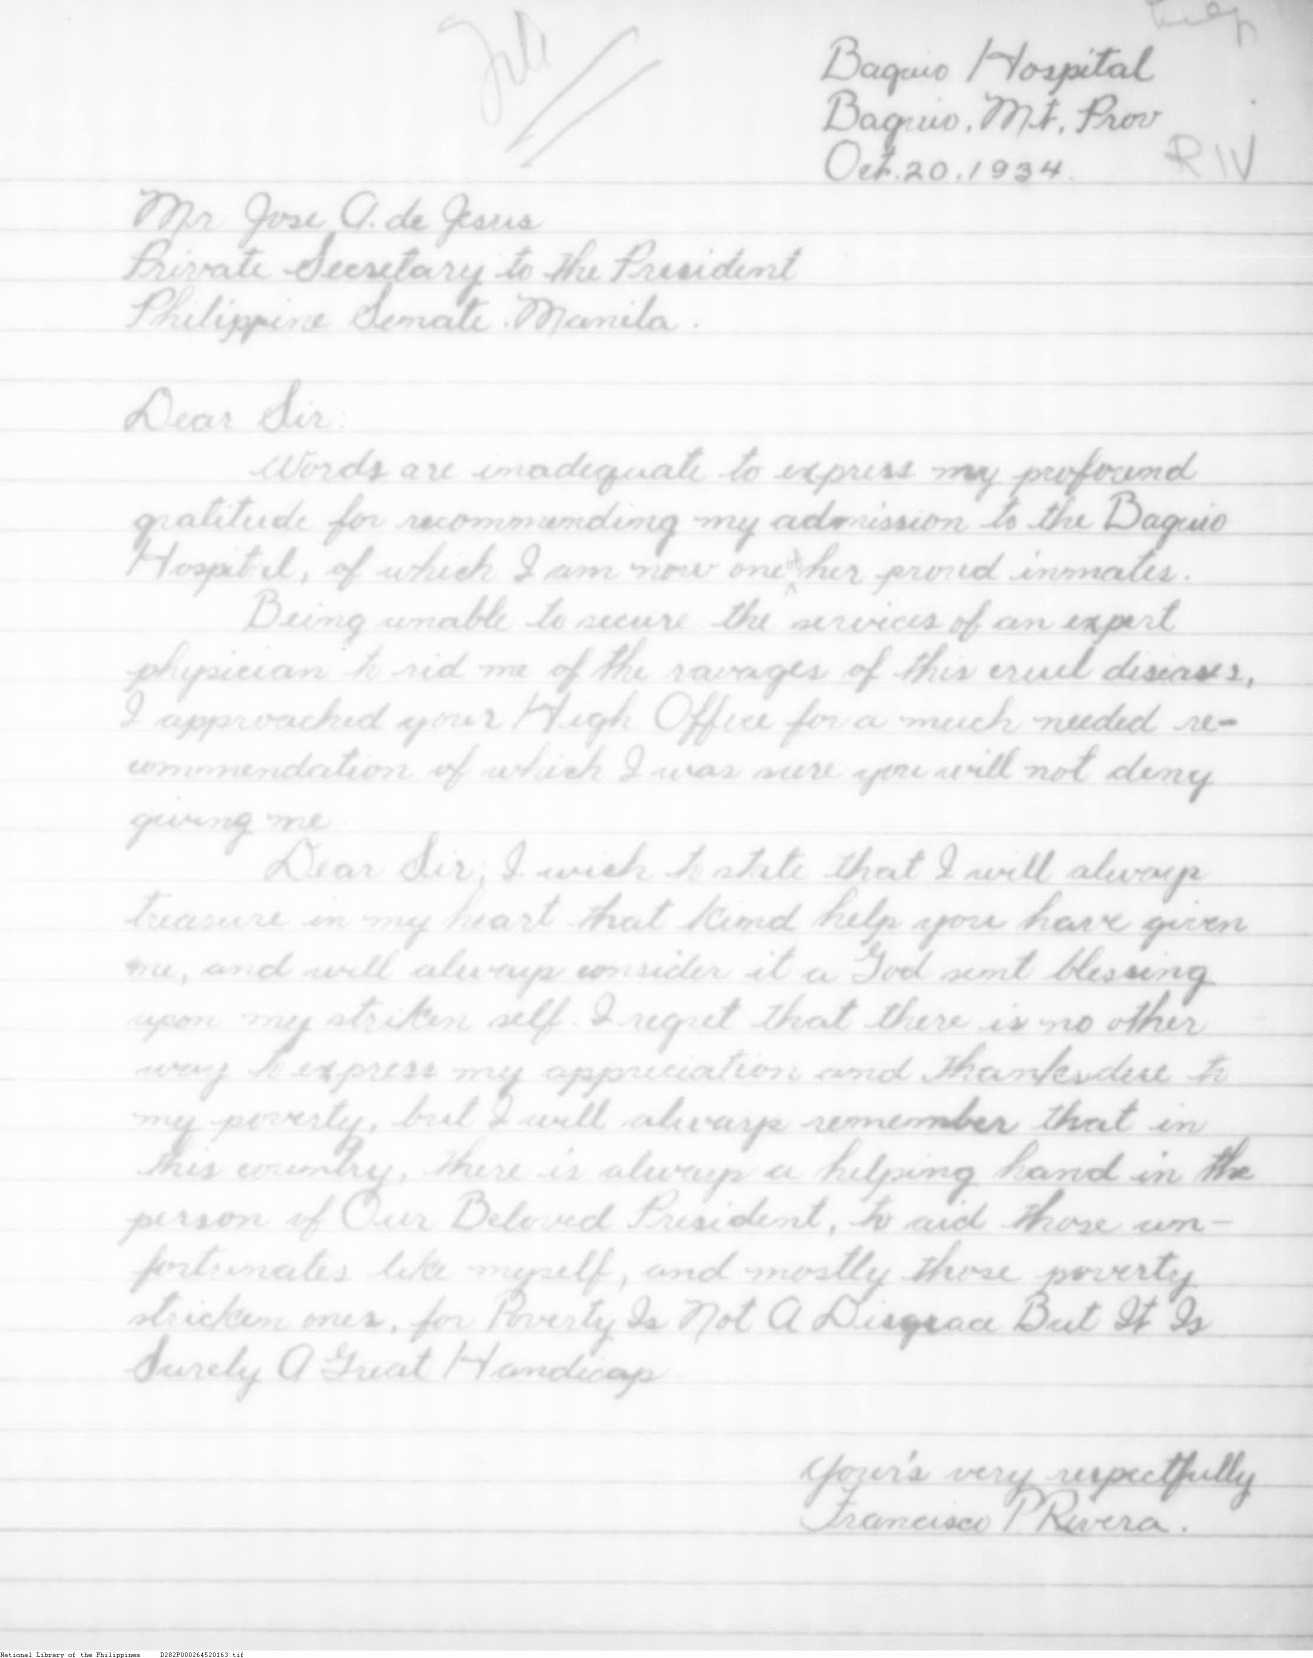 help
File
Baguio Hospital
Baguio, Mt. Prov
Oct. 20. 1934.
RIV
Mr Jose A. de Jesus
Private Secretary to the President
Philippine Senate. Manila.
Dear Sir:
Words are inadequate to express my profound
gratitude for recommending my admission to the Baguio
Hospital, of which I am now one of her proud inmates.
Being unable to secure the services of an expert
physician to rid me of the ravages of this cruel diseases,
I approached your High Office for a much needed re-
commendation of which I was sure you will not deny
giving me
Dear Sir, I wish to state that I will always
treasure in my heart that kind help you have given
me, and will always consider it a God sent blessing
upon my striken self. I regret that there is no other
way to express my appreciation and thanks due to
my poverty, but I will always remember that in
this country, there is always a helping hand in the
person of Our Beloved President, to aid those un-
fortunates like myself, and mostly those poverty
stricken ones, for Poverty Is Not A Disgrace But It Is
Surely A Great Handicap
Your's very respectfully
Francisco P Rivera.
National Library of the Philippines D282P000264520163.tif